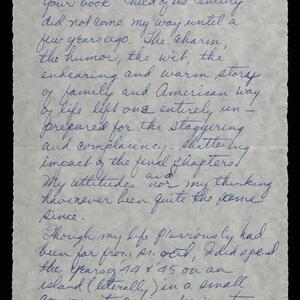 your book "Child of the Century"
did not come my way until a
few years ago. The charm,
the humor, the wit, the
endearing and warm story
of family and American way
of life left one entirely un-
prepared for the staggering
and complacency-shattering
impact of the final chapters.
My attitudes and nor my thinking
have never been quite the same
since.
Though my life previously had
been far from, I did spend
the years 44 & 45 on an
island (literally) in a small